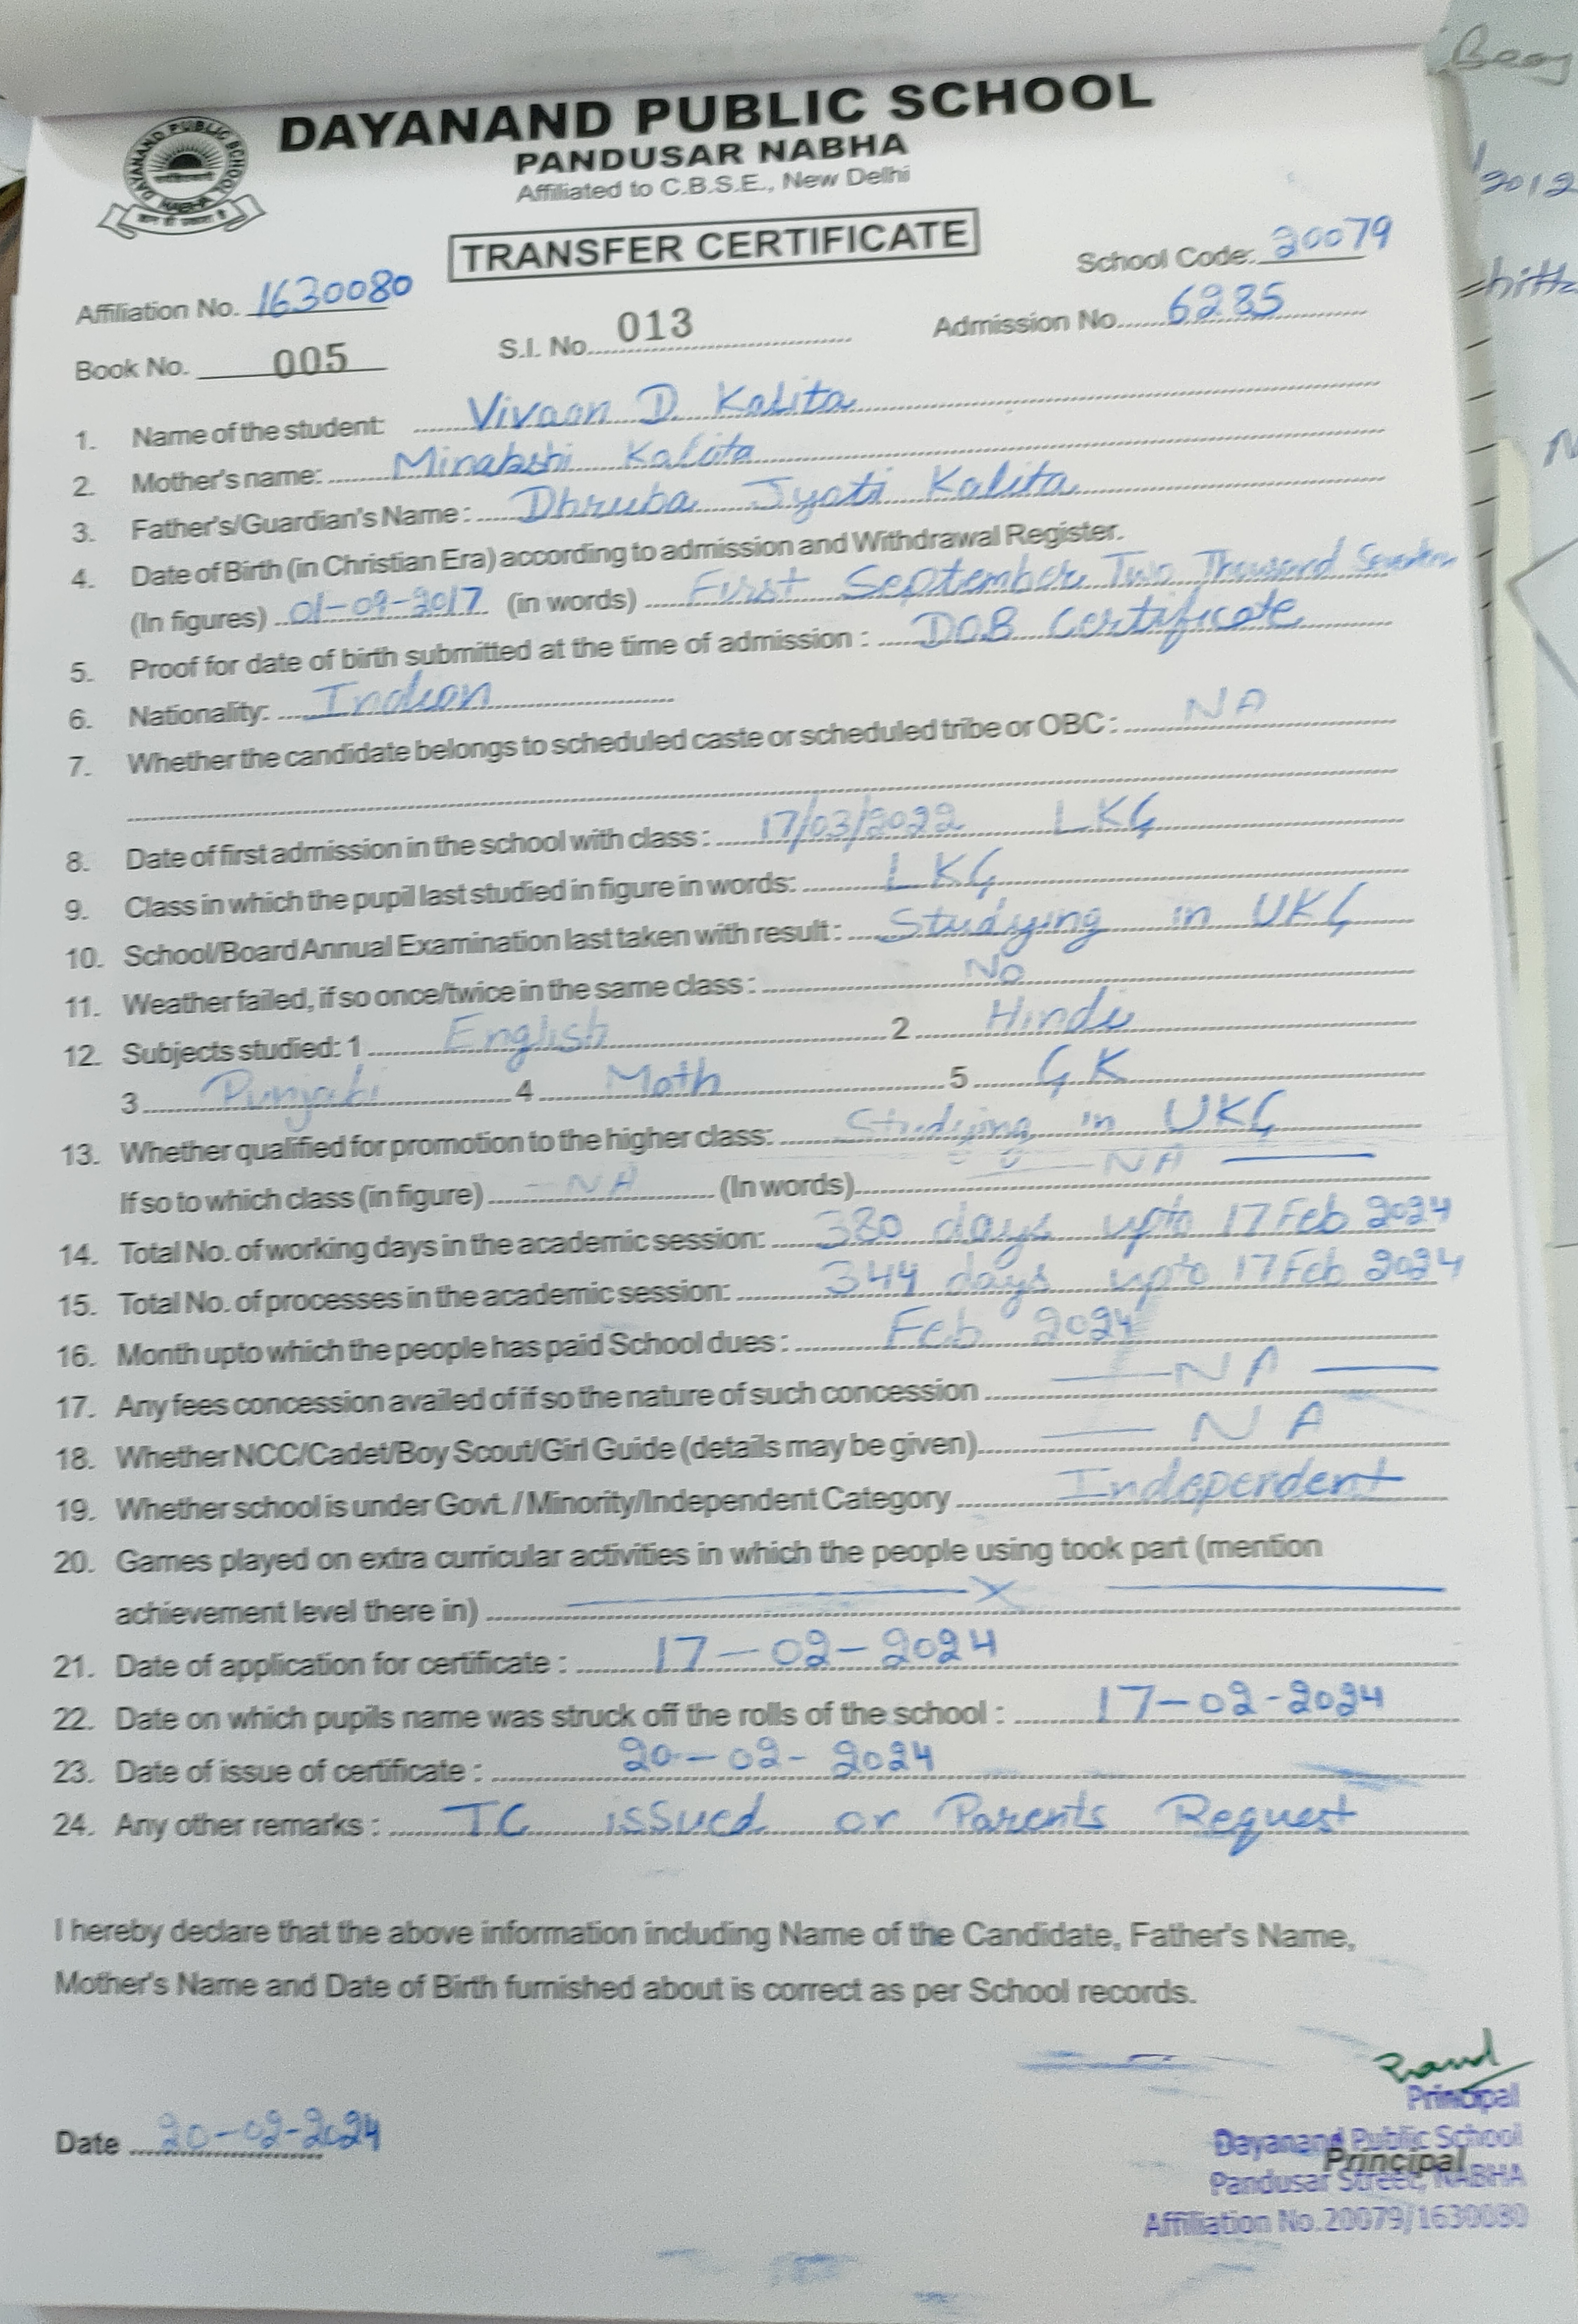 DAYANAND PUBLIC SCHOOL
PANDUSAR NABHA
Affiliated to C.B.S.E., New Delhi
DAYANAND PUBLIC SCHOOL
NABHA
TRANSFER CERTIFICATE
Affiliation No. 1630080 School Code: 20079
Book No. 005 S.I. No. 013 Admission No. 6285
1. Name of the student: Vivaan D Kalita
2. Mother's name: Minakshi Kalita
3. Father's/Guardian's Name: Dhruba Jyoti Kalita
4. Date of Birth (in Christian Era) according to admission and Withdrawal Register.
(In figures) 01-09-2017 (in words) First September Two Thousand
5. Proof for date of birth submitted at the time of admission : DOB Certificate
6. Nationality: Indian
7. Whether the candidate belongs to scheduled caste or scheduled tribe or OBC : NA
8. Date of first admission in the school with class : 17/03/2022 LKG
9. Class in which the pupil last studied in figure in words: LKG
10. School/Board Annual Examination last taken with result : Studying in UKG
11. Weather failed, if so once/twice in the same class : No
12. Subjects studied: 1 English 2 Hindi
3 Punjabi 4 Math 5 GK
13. Whether qualified for promotion to the higher class: Studying in UKG
If so to which class (in figure) NA (In words) NA
14. Total No. of working days in the academic session: 380 days upto 17 Feb 2024
15. Total No. of processes in the academic session: 344 days upto 17 Feb 2024
16. Month upto which the people has paid School dues : Feb 2024
17. Any fees concession availed of if so the nature of such concession NA
18. Whether NCC/Cadet/Boy Scout/Girl Guide (details may be given) NA
19. Whether school is under Govt. / Minority/Independent Category Independent
20. Games played on extra curricular activities in which the people using took part (mention
achievement level there in) X
21. Date of application for certificate : 17-02-2024
22. Date on which pupils name was struck off the rolls of the school : 17-02-2024
23. Date of issue of certificate : 20-02-2024
24. Any other remarks : TC issued on Parents Request
I hereby declare that the above information including Name of the Candidate, Father's Name,
Mother's Name and Date of Birth furnished about is correct as per School records.
Principal
Dayanand Public School
Date 20-02-2024 Principal
Pandusar Street, NABHA
Affiliation No. 20079/1630080
2012